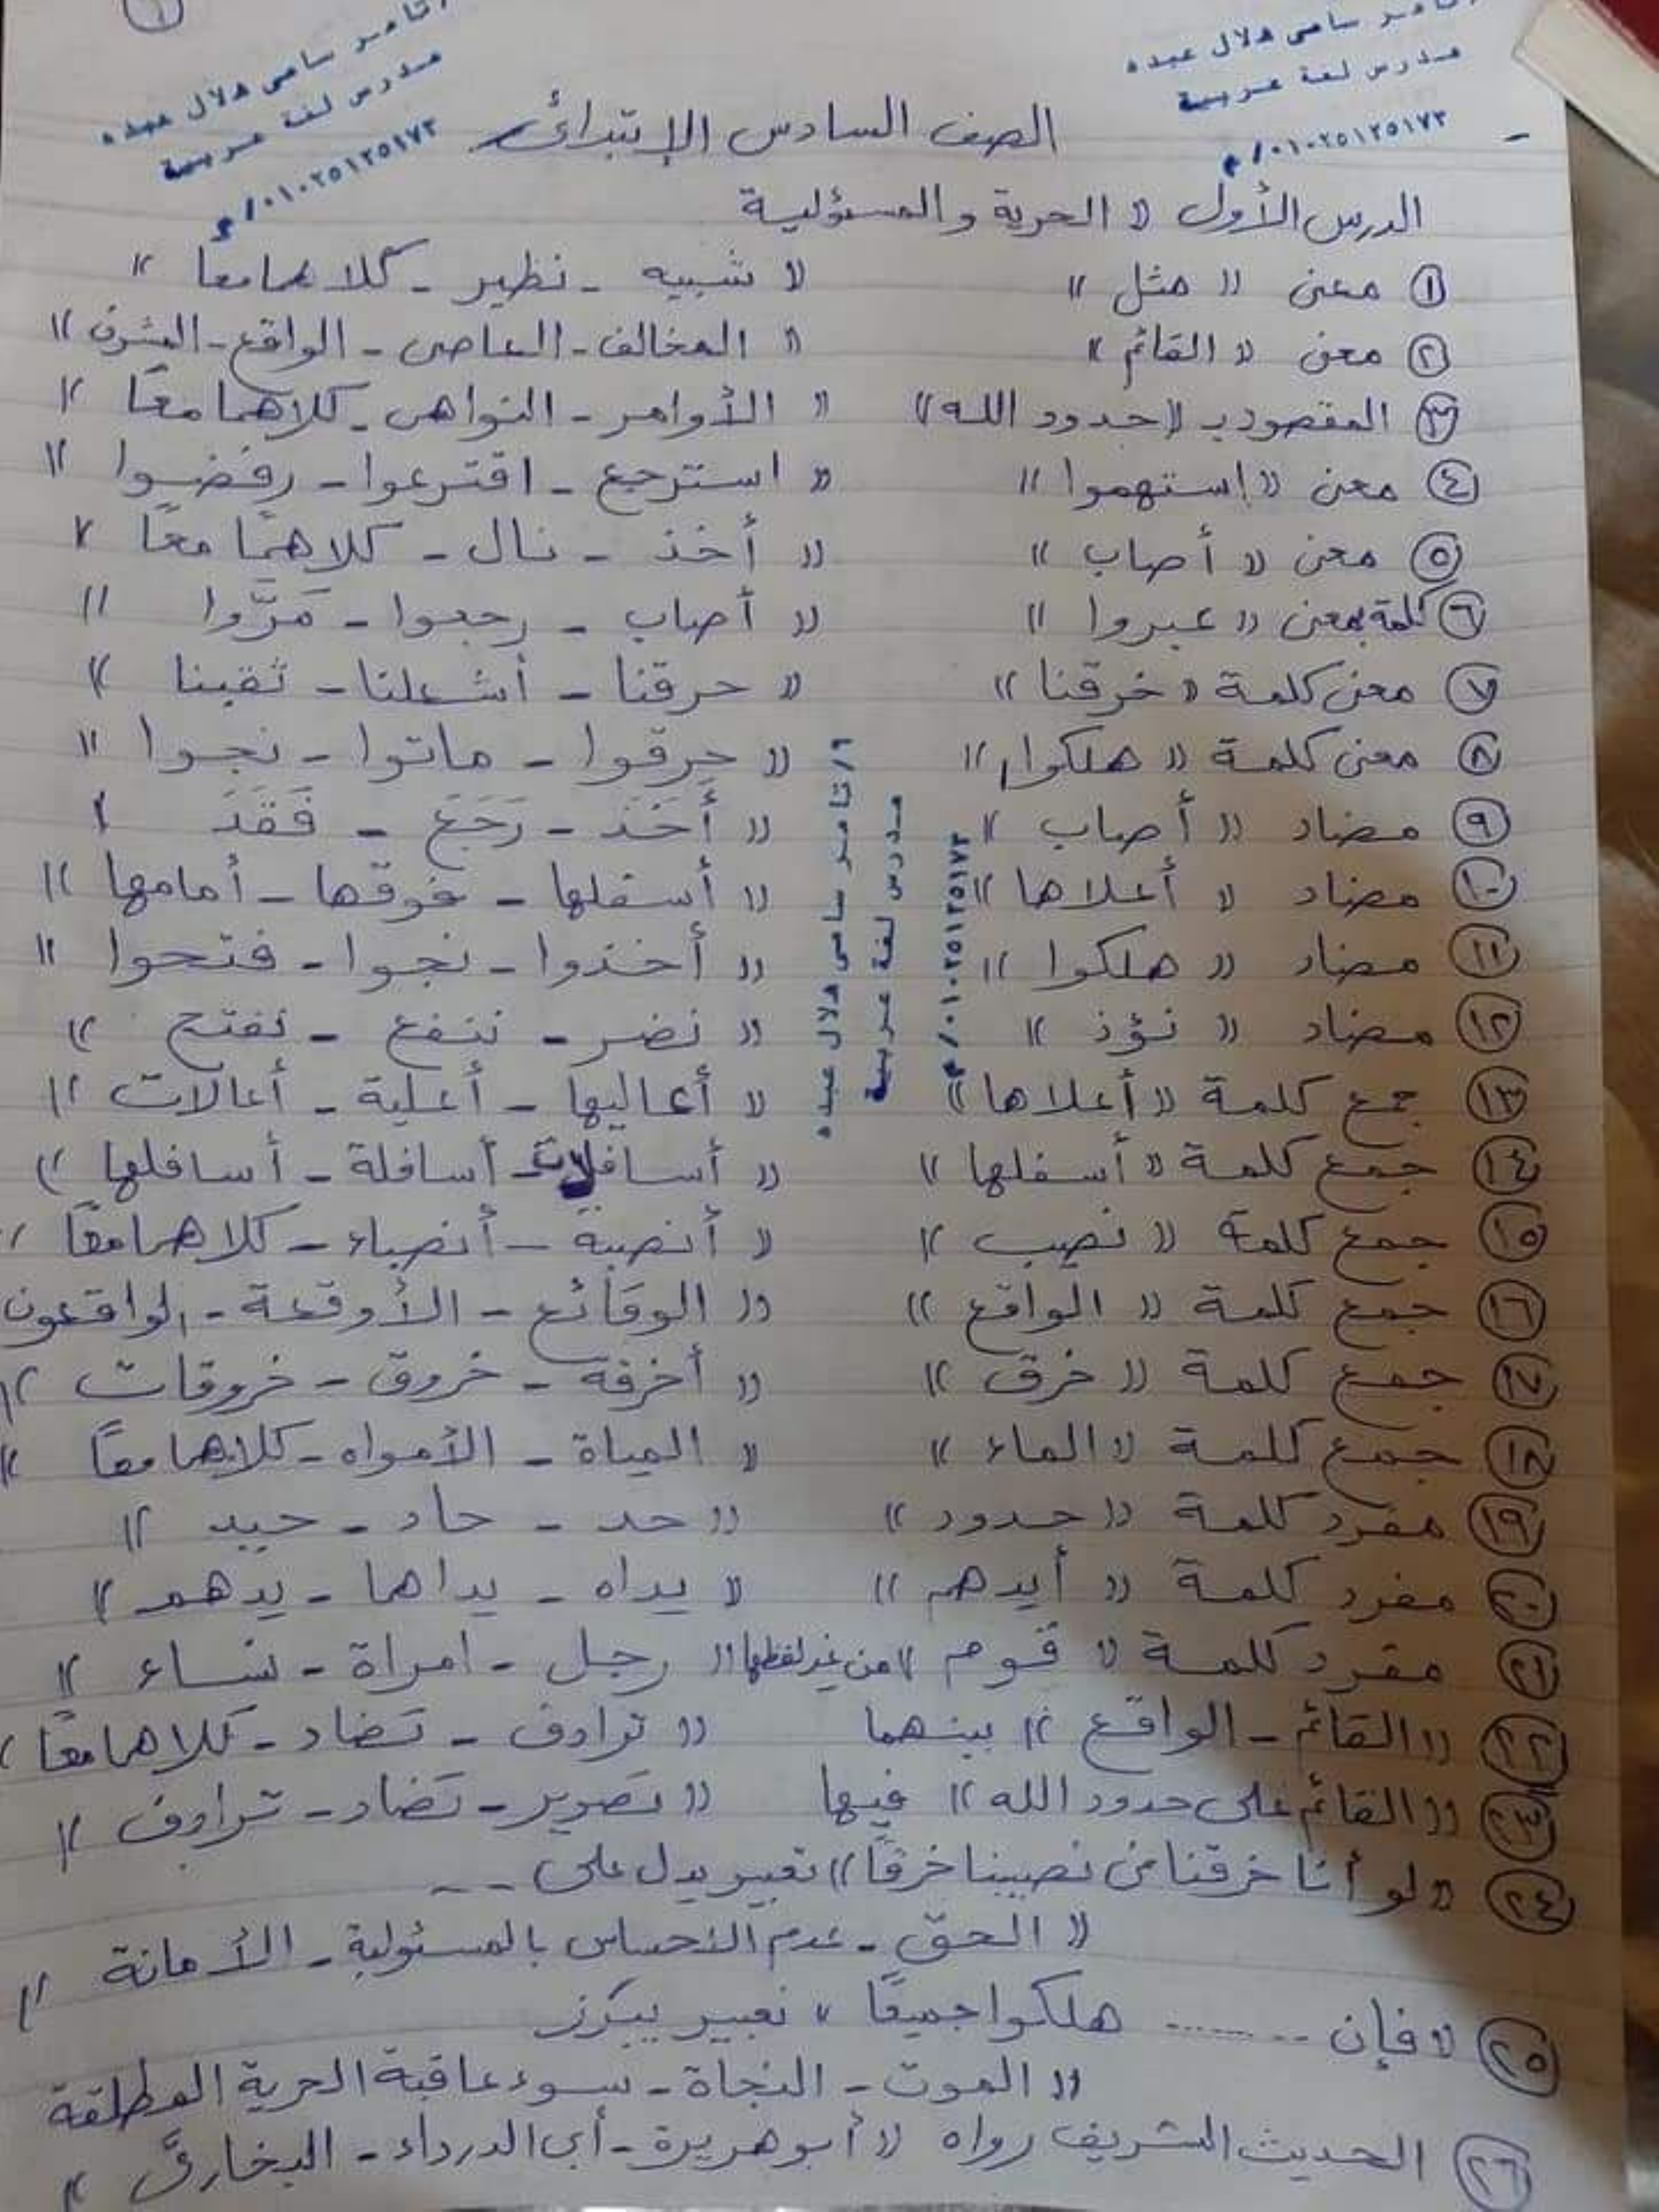 ١
أ/ تامر سامى هلال عبده
مدرس لغة عربية
٠١٠٢٥١٢٥١٧٣ / م
تامر سامى هلال عبده
مدرس لغة عربية
٠١٠٢٥١٢٥١٧٣ / م
الصف السادس الإبتدائى
الدرس الأول « الحرية والمسؤلية
١ معنى « مثل » « شبيه - نظير - كلاهما معًا »
٢ معنى « القائم » « المخالف - العاصى - الواقع - المشرف »
٣ المقصود بـ «حدود الله» « الأوامر - النواهى - كلاهما معًا »
٤ معنى « إستهموا » « استرجع - اقترعوا - رفضوا »
٥ معنى « أصاب » « أخذ - نال - كلاهما معًا »
٦ كلمة بمعنى « عبروا » « أصاب - رجعوا - مَرَّوا »
٧ معنى كلمة « خرقنا » « حرقنا - أشعلنا - ثقبنا »
٨ معنى كلمة « هلكوا » « حرقوا - ماتوا - نجوا »
٩ مضاد « أصاب » « أَخَذَ - رَجَعَ - فَقَدَ »
١٠ مضاد « أعلاها » « أسفلها - فوقها - أمامها »
١١ مضاد « هلكوا » « أخذوا - نجوا - فتحوا »
١٢ مضاد « نؤذ » « نضر - ننفع - نفتح »
١٣ جمع كلمة « أعلاها » « أعاليها - أعلية - أعالات »
١٤ جمع كلمة « أسفلها » « أسافلات - أسافلة - أسافلها »
١٥ جمع كلمة « نصيب » « أنصبة - أنصباء - كلاهما معًا »
١٦ جمع كلمة « الواقع » « الوقائع - الأوقعة - الواقعون
١٧ جمع كلمة « خرق » « أخرقة - خروق - خروقات »
١٨ جمع كلمة « الماء » « المياة - الأمواه - كلاهما معًا »
١٩ مفرد كلمة « حدود » « حد - حاد - حيد »
٢٠ مفرد كلمة « أيدهم » « يداه - يداهما - يدهم »
٢١ مفرد كلمة « قوم » من غير لفظها « رجل - امراة - نساء »
٢٢ « القائم - الواقع » بينهما « ترادف - تضاد - كلاهما معًا »
« القائم على حدود الله » فيها « تصوير - تضاد - ترادف »
٢٤ « لو أنا خرقنا فى نصيبنا خرقًا » تعبير يدل على ---
« الحق - عدم الاحساس بالمسئولية - الأمانة »
٢٥ « فإن ........ هلكوا جميعًا » تعبير يبرز
« الموت - النجاة - سوء عاقبة الحرية المطلقة
٢٦ الحديث الشريف رواه « أبو هريرة - أبى الدرداء - البخارىَّ »
أ/ تامر سامى هلال عبده
مدرس لغة عربية
٠١٠٢٥١٢٥١٧٣ / م